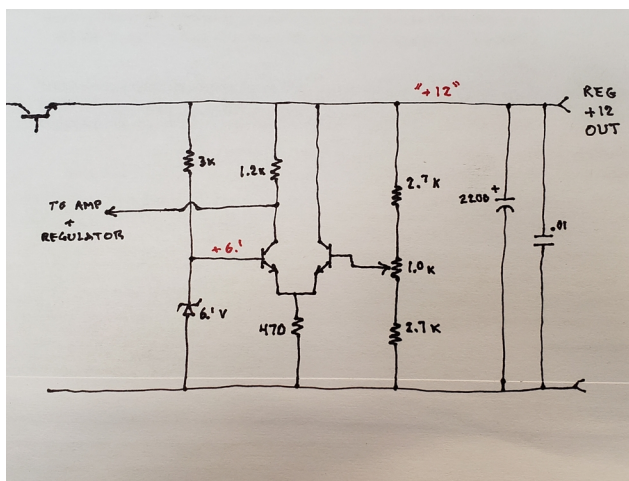 "+12"
REG
+12
OUT
3K
1.2K
2.7K
2200
+
.01
TO AMP
+
REGULATOR
+6.1
1.0K
6.1V
470
2.7K